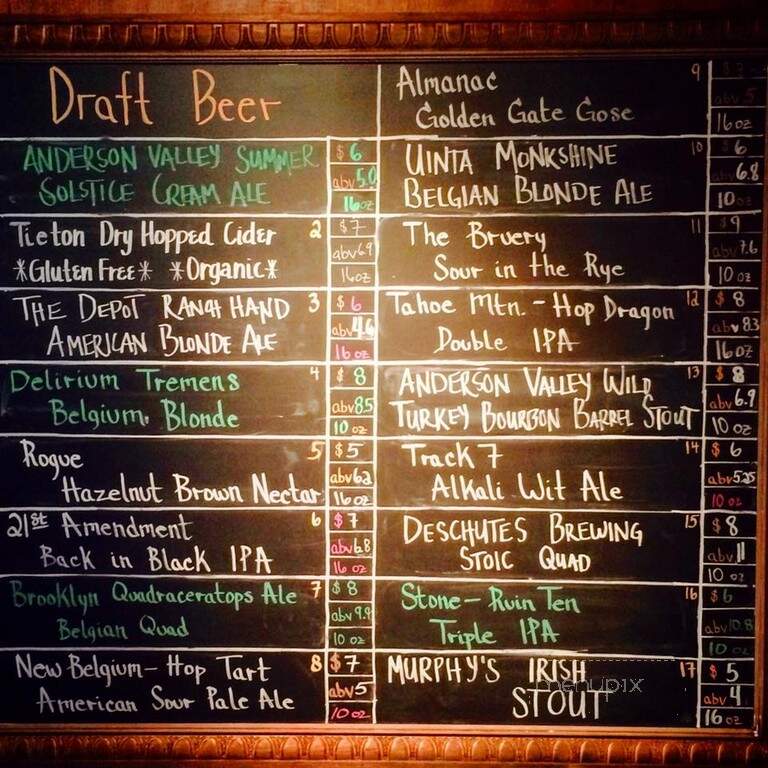 Draft Beer
ANDERSON VALLEY SUMMER
SOLSTICE CREAM ALE
$6
abv 5.0
16oz
Tieton Dry Hopped Cider
*Gluten Free* *Organic*
2
$7
abv 6.9
16oz
THE DEPOT RANCH HAND
AMERICAN BLONDE ALE
3
$6
abv 4.6
16 oz
Delirium Tremens
Belgium Blonde
4
$8
abv 8.5
10 oz
Rogue
Hazelnut Brown Nectar
5
$5
abv 6.2
16 oz
21st Amendment
Back in Black IPA
6
$7
abv 6.8
16 oz
Brooklyn Quadraceratops Ale
Belgian Quad
7
$8
abv 9.9
10 oz
New Belgium - Hop Tart
American Sour Pale Ale
8
$7
abv 5
10 oz
Almanac
Golden Gate Gose
9
abv 5
16oz
UINTA MONKSHINE
BELGIAN BLONDE ALE
10
$6
abv 6.8
10oz
The Bruery
Sour in the Rye
11
$9
abv 7.6
10 oz
Tahoe Mtn. - Hop Dragon
Double IPA
12
$8
abv 8.3
16oz
ANDERSON VALLEY WILD
TURKEY BOURBON BARREL STOUT
13
$8
abv 6.9
10 oz
Track 7
Alkali Wit Ale
14
$6
abv 5.25
10 oz
DESCHUTES BREWING
STOIC QUAD
15
$8
abv 11
10 oz
Stone - Ruin Ten
Triple IPA
16
$6
abv 10.8
10 oz
MURPHY'S IRISH
STOUT
17
$5
abv 4
16 oz
menupix